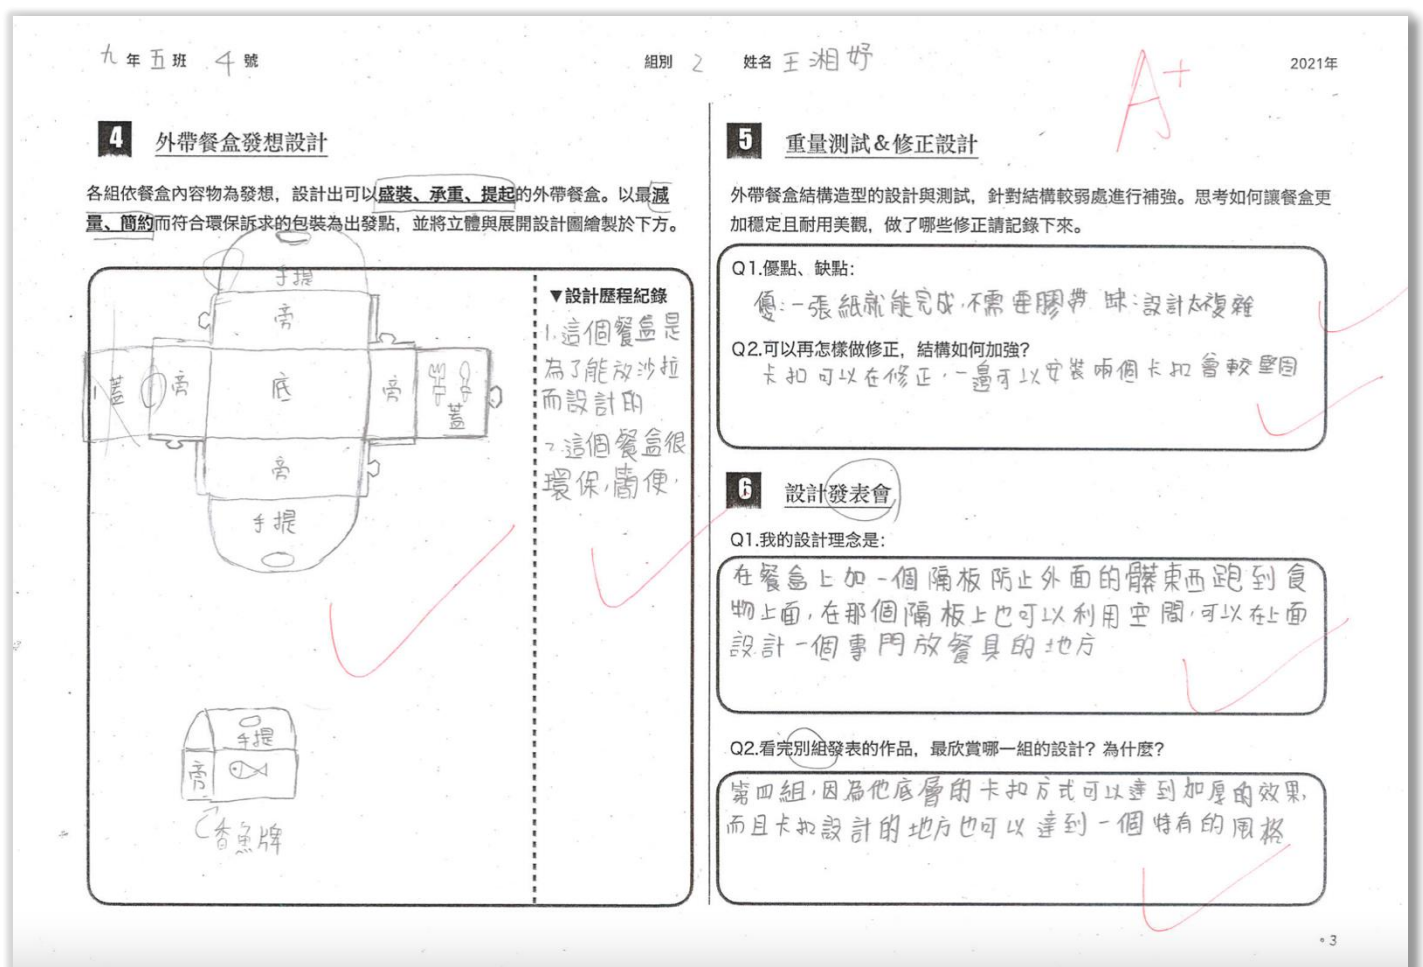 九年五班 4號 組別 2 姓名 王湘妤 2021年
A+
4 外帶餐盒發想設計
各組依餐盒內容物為發想，設計出可以盛裝、承重、提起的外帶餐盒。以最減
量、簡約而符合環保訴求的包裝為出發點，並將立體與展開設計圖繪製於下方。
手提
旁
蓋 旁 底 旁 蓋
旁
手提
手提
旁
香魚牌
▼設計歷程紀錄
1.這個餐盒是
為了能放沙拉
而設計的
2.這個餐盒很
環保，簡便，
5 重量測試&修正設計
外帶餐盒結構造型的設計與測試，針對結構較弱處進行補強。思考如何讓餐盒更
加穩定且耐用美觀，做了哪些修正請記錄下來。
Q1.優點、缺點：
優：一張紙就能完成，不需要膠帶 缺：設計太複雜
Q2.可以再怎樣做修正，結構如何加強?
卡扣可以在修正，一邊可以安裝兩個卡扣會較堅固
6 設計發表會
Q1.我的設計理念是：
在餐盒上加一個隔板防止外面的髒東西跑到食
物上面，在那個隔板上也可以利用空間，可以在上面
設計一個專門放餐具的地方
Q2.看完別組發表的作品，最欣賞哪一組的設計？為什麼？
第四組，因為他底層的卡扣方式可以達到加厚的效果，
而且卡扣設計的地方也可以達到一個特有的風格
3